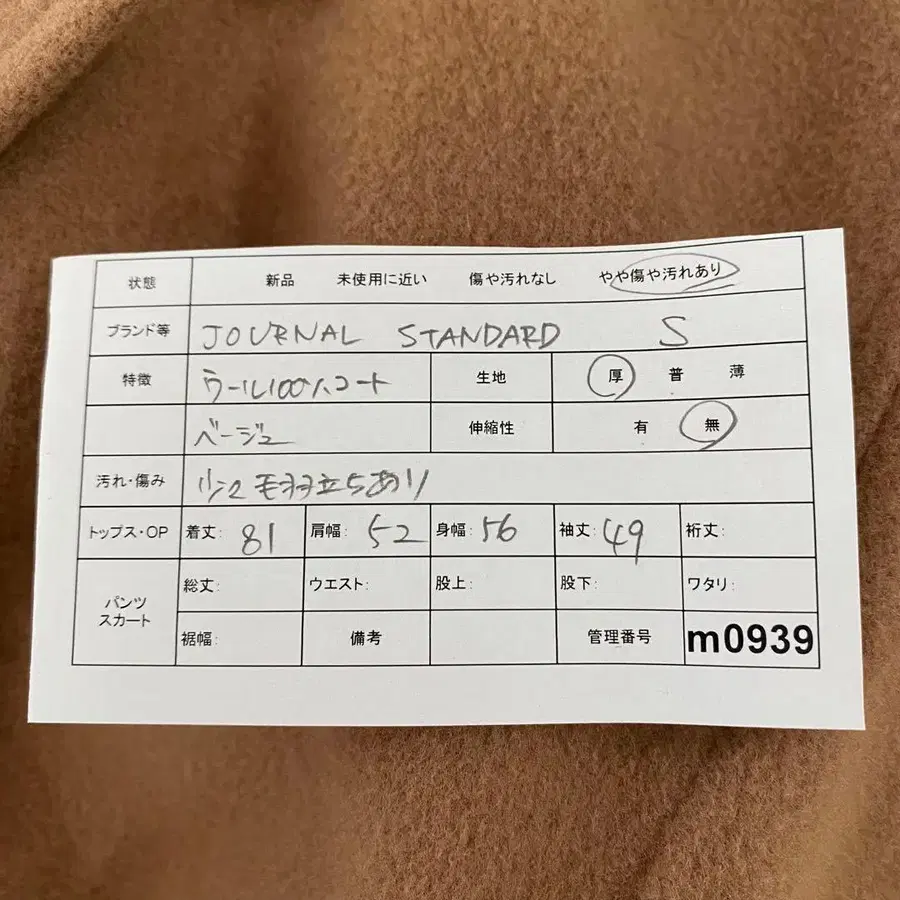 状態 新品 未使用に近い 傷や汚れなし やや傷や汚れあり
ブランド等 JOURNAL STANDARD S
特徴 ウール100%コート 生地 厚 普 薄
ベージュ 伸縮性 有 無
汚れ・傷み 毛羽立ちあり
トップス・OP 着丈: 81 肩幅: 52 身幅: 56 袖丈: 49 裄丈:
パンツ スカート 総丈: ウエスト: 股上: 股下: ワタリ:
裾幅: 備考 管理番号 m0939